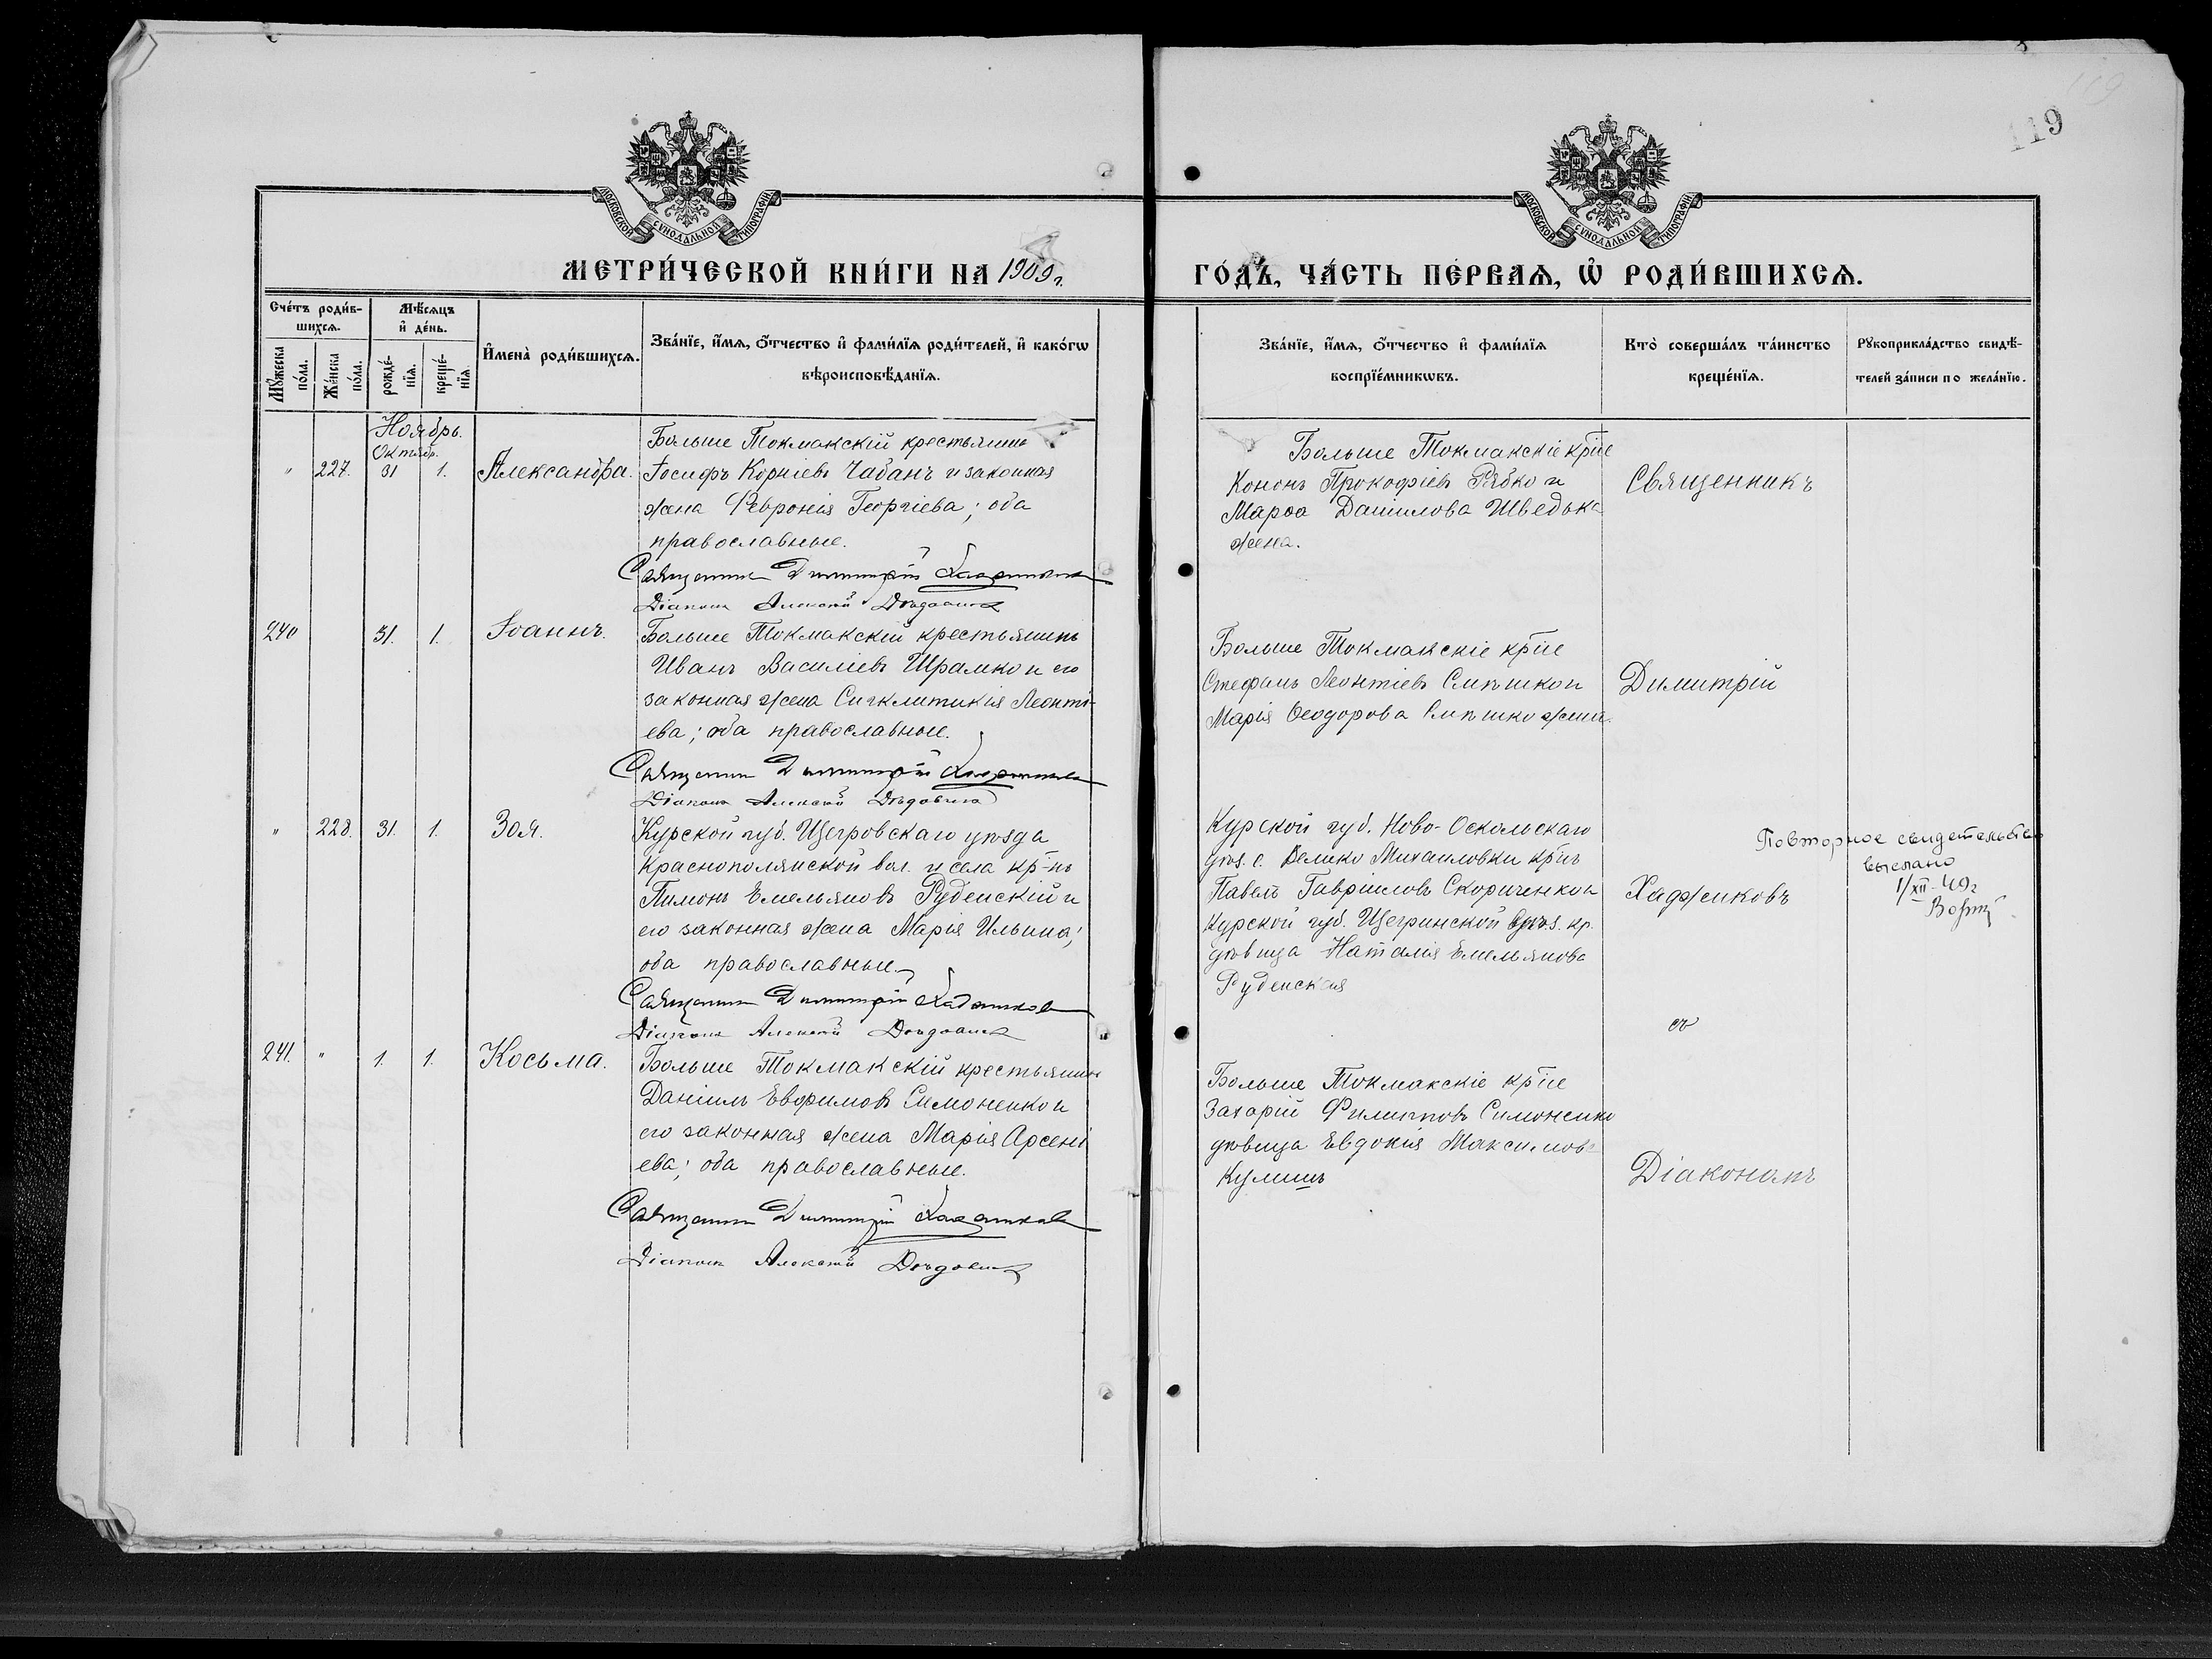 119
МОСКОВСКОЙ СУНОДАЛЬНОЙ ТИПОГРАФІИ
МОСКОВСКОЙ СУНОДАЛЬНОЙ ТИПОГРАФІИ
МЕТРИ́ЧЕСКОЙ КНИ́ГИ НА 1909 г.
ГО́ДЪ, ЧА́СТЬ ПЕ́РВАЯ, Ѡ РОДИ́ВШИХСЯ.
Сче́тъ роди́в-
шихся.
Мѣ́сяцъ
и де́нь.
Му́жеска
по́ла.
Же́нска
по́ла.
рожде́-
нїя.
креще́-
нїя.
И҆мена̀ роди́вшихся.
Зва́нїе, и҆́мя, ѻ҆́тчество и҆ фами́лїя роди́телей, и҆ како́гѡ
вѣроисповѣ́данїя.
Зва́нїе, и҆́мя, ѻ҆́тчество и҆ фами́лїя
воспрїе́мникѡвъ.
Кто̀ соверша́лъ та́инство
креще́нїя.
Рꙋкоприкла́дство свидѣ́-
телей за́писи по жела́нїю.
Ноябрь.
Октябр.
" 227. 31 1. Александра.
Больше Токмакскій крестьянинъ
Іосифъ Корніевъ Чабанъ и законная
жена Февронія Георгіева; оба
православные.
Священникъ Димитрій Хаджиковъ
Діаконъ Алексѣй
Больше Токмакскіе кр‑іе
Кононъ Прокофіевъ Рябко и
Марѳа Даніилова Шведька
жена.
Священникъ
240 31. 1. Іоаннъ.
Больше Токмакскій крестьянинъ
Иванъ Василіевъ Шрамко и его
законная жена Сигклитикія Леонті-
ева; оба православные.
Священникъ Димитрій Хаджиковъ
Діаконъ Алексѣй
Больше Токмакскіе кр‑іе
Стефанъ Леонтіевъ Слѣпько и
Марія Ѳеодорова Слѣпько жена.
Димитрій
" 228. 31. 1. Зоя.
Курской губ. Щегровскаго уѣзда
Краснополянской вол. и села кр‑нъ
Пимонъ Емельяновъ Руденскій и
его законная жена Марія Ильина;
оба православные.
Священникъ Димитрій Хаджиковъ
Діаконъ Алексѣй
Курской губ. Ново-Оскольскаго
уѣз. с. Велико Михаиловки кр‑нъ
Павелъ Гавріиловъ Скориченко и
Курской губ. Щегринской уѣз. кр.
дѣвица Наталія Емельянова
Руденская
Хаджиковъ
Повторное свидетельство
выслано
1/XII-49г
съ
241. " 1. 1. Косьма.
Больше Токмакскій крестьянинъ
Даніилъ Евфимовъ Симоненко и
его законная жена Марія Арсені
ева; оба православные.
Священникъ Димитрій Хаджиковъ
Діаконъ Алексѣй
Больше Токмакскіе кр‑іе
Захарій Филипповъ Симоненко
дѣвица Евдокія Максимова
Кулишъ
Діакономъ